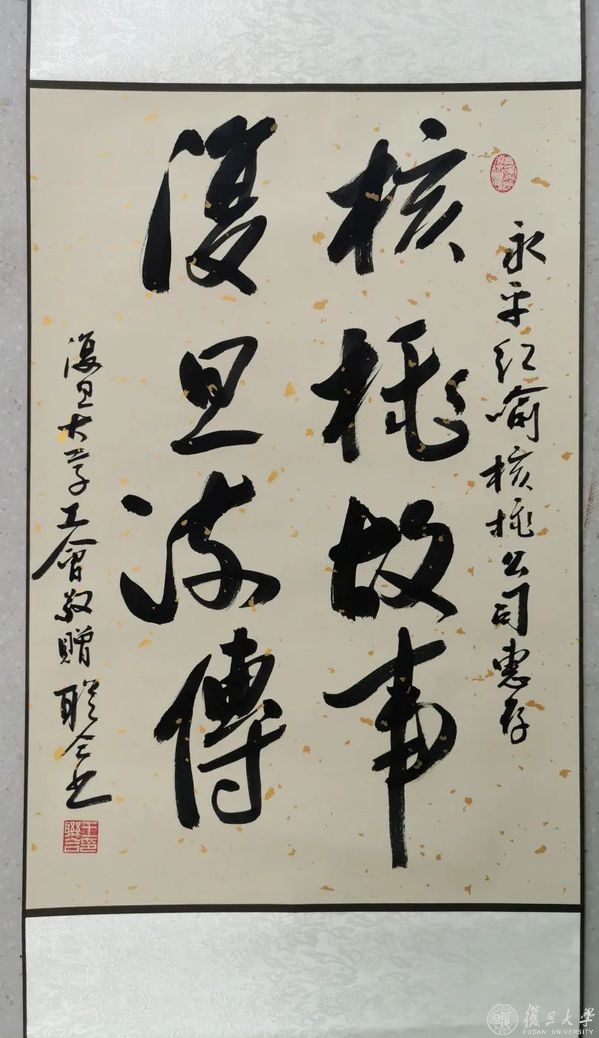 永平红喻核桃公司惠存
核桃故事
復旦流傳
復旦大学工會敬贈 聯合书
復旦大學
FUDAN UNIVERSITY